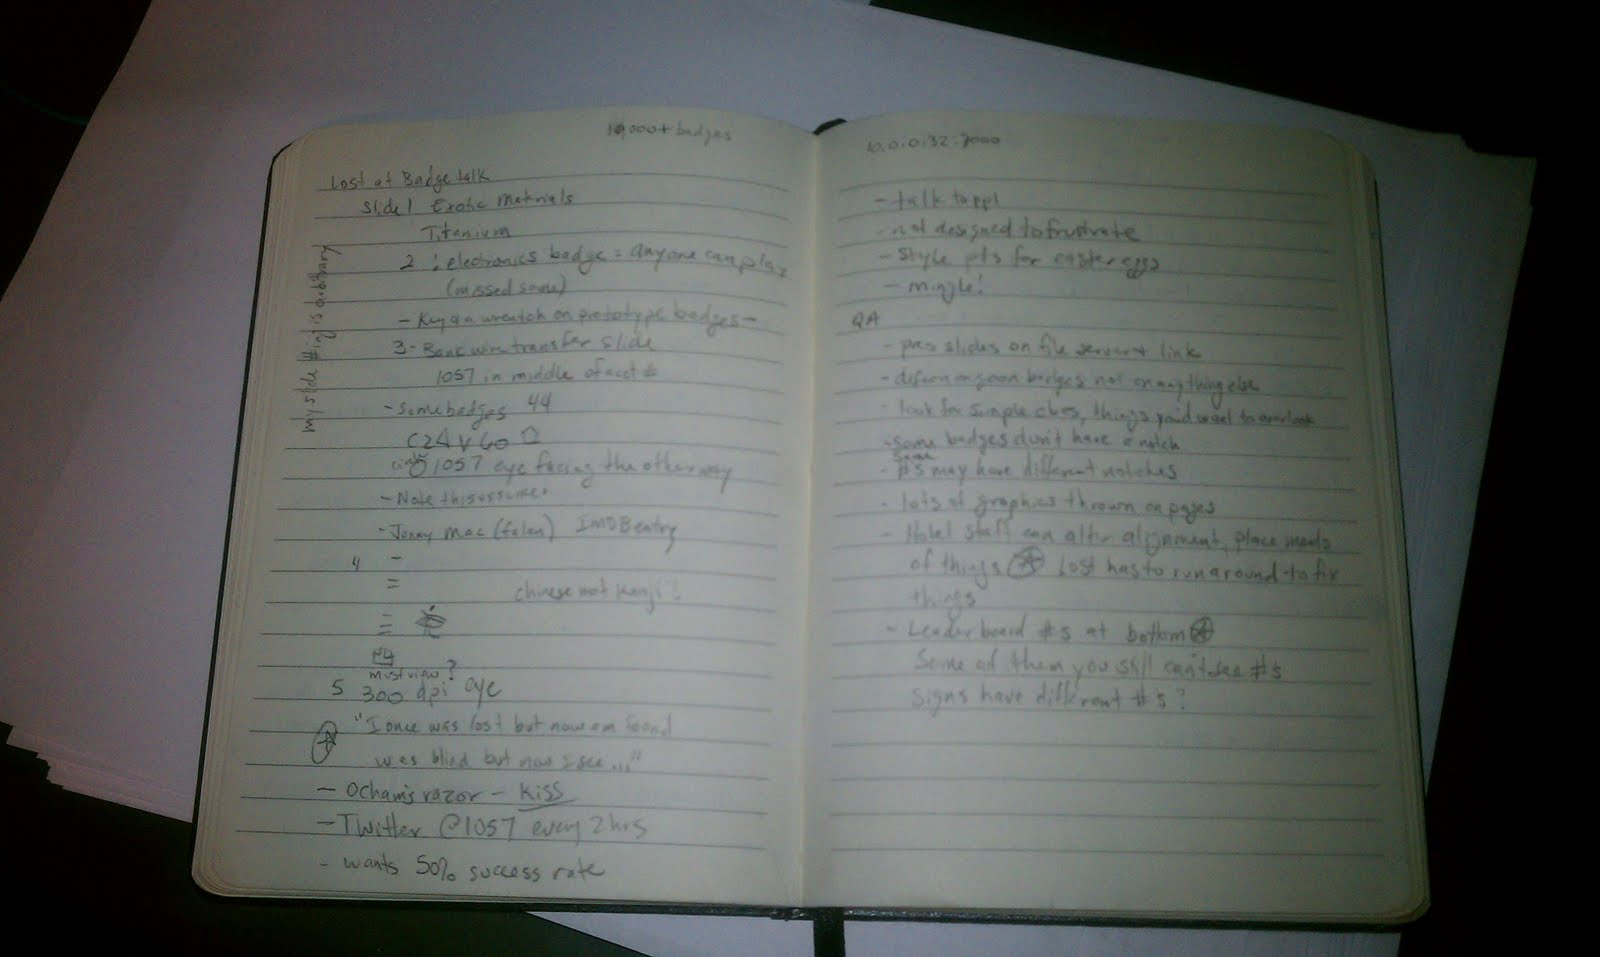 10,000+ badges
Lost at Badge talk
Slide 1 Exotic Materials
Titanium
2 : electronics badge = anyone can play
(missed some)
- Key & a wrentch on prototype badges -
3 - Bank wire transfer slide
1057 in middle of acct #
- some badges 44
1057 eye facing the other way
- Note this
- Jonny Mac (felen) IMDB entry
4 -
=
chinese not kanji?
must view?
5 300 dpi eye
"I once was lost but now am found
was blind but now I see..."
- Ocham's razor - KISS
- Twitter @1057 every 2 hrs
- wants 50% success rate
my slide #ing is arbitrary
10.0.0.32:
- talk to ppl
- not designed to frustrate
- Style pts for easter eggs
- mingle!
QA
- slides on file server + link
- badges not on anything else
- look for simple things you'd want to overlook
- Some badges don't have a notch
- Same #'s may have different notches
- lots of graphics thrown on pages
- Hotel staff can alter alignment, place
of things Lost has to run around to fix
things
- Leader board #'s at bottom
Some of them you still can't see #'s
Signs have different #'s?